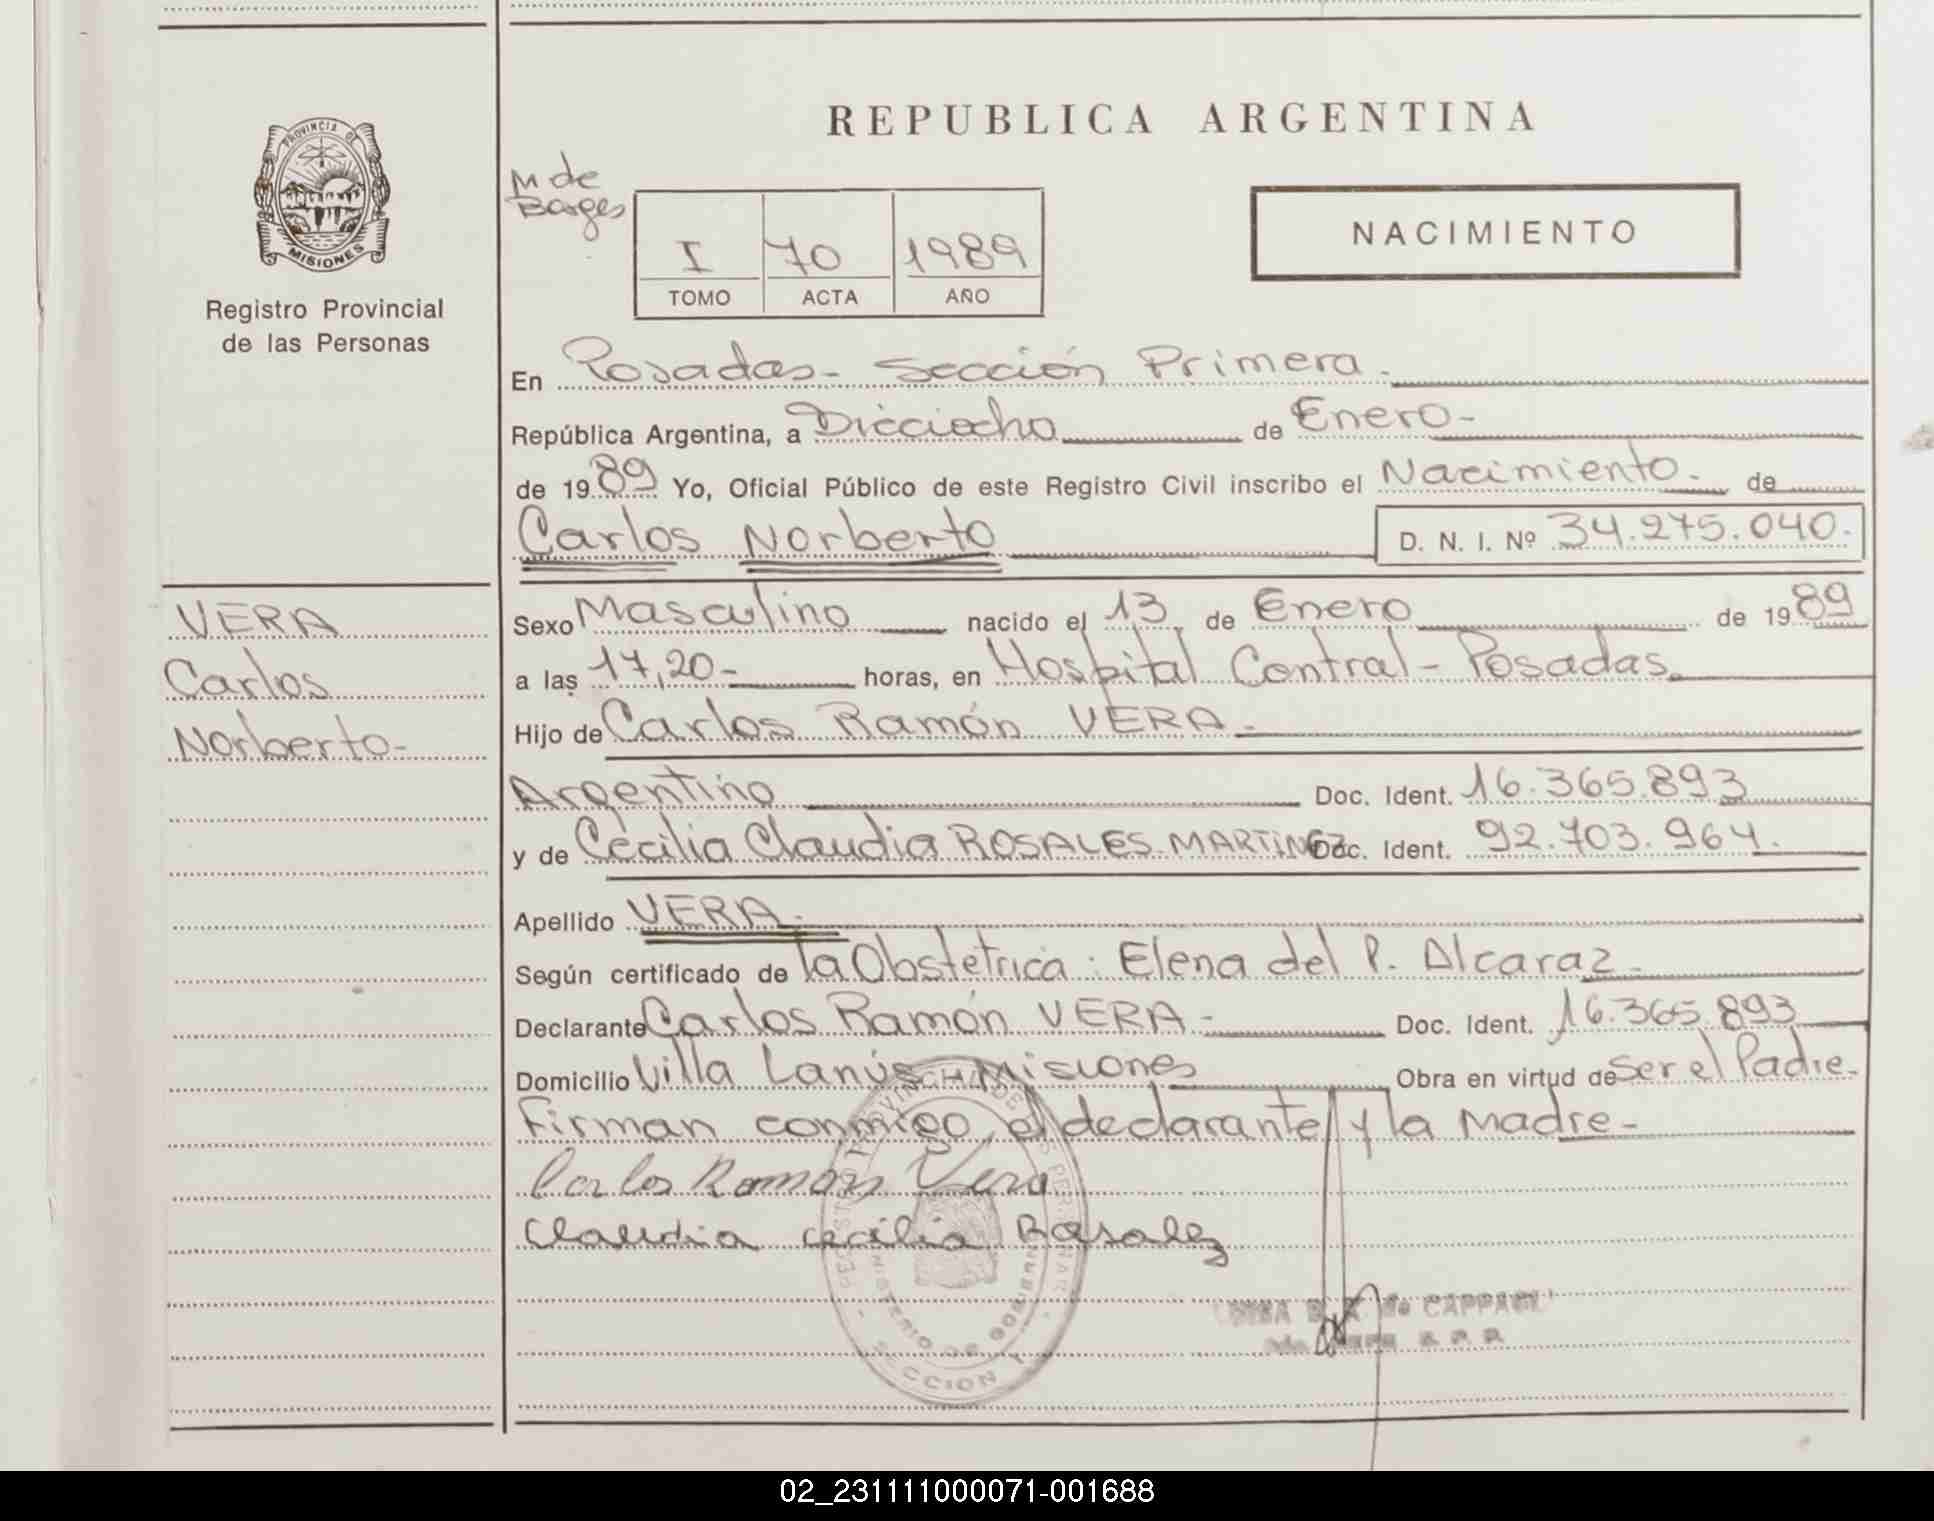 PROVINCIA DE
MISIONES
Registro Provincial
de las Personas
VERA
Carlos
Norberto-
REPUBLICA ARGENTINA
M de
Borges
I 70 1989
TOMO ACTA AÑO
NACIMIENTO
En Posadas- Sección Primera.
República Argentina, a Dieciocho de Enero-
de 1989 Yo, Oficial Público de este Registro Civil inscribo el Nacimiento. de
Carlos Norberto D. N. I. Nº 34.275.040.
Sexo Masculino nacido el 13 de Enero de 1989
a las 17,20- horas, en Hospital Central - Posadas.
Hijo de Carlos Ramón VERA-
Argentino Doc. Ident. 16.365.893
y de Cecilia Claudia ROSALES MARTINEZ Doc. Ident. 92.703.964.
Apellido VERA.
Según certificado de la Obstetrica: Elena del P. Alcaraz-
Declarante Carlos Ramón VERA- Doc. Ident. 16.365.893
Domicilio Villa Lanús Misiones Obra en virtud de ser el Padre-
Firman conmigo, el declarante y la Madre-
Carlos Ramon Vera
Claudia cecilia Rosalez
de CAPPAGLI
MINISTERIO DE GOBIERNO
SECCION 1
02_231111000071-001688